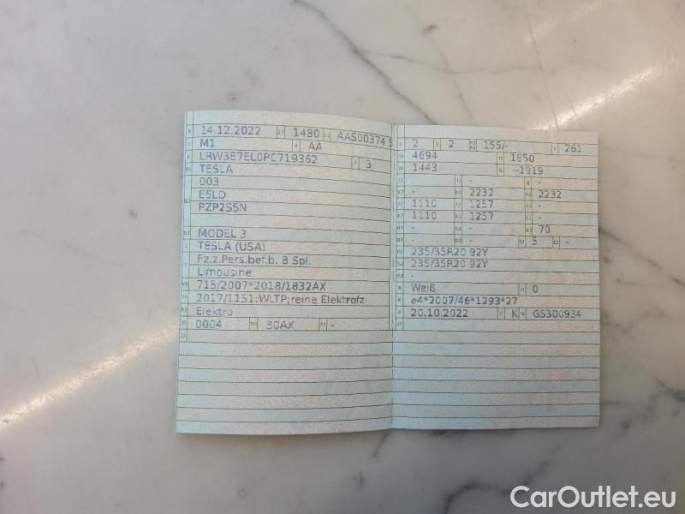 14.12.2022 1480 AAS00374
M1 AA
LRW3E7EL0PC719362 3
TESLA
003
E5LD
PZP2S5N
MODEL 3
TESLA (USA)
Fz.z.Pers.bef.b. 8 Spl.
Limousine
715/2007*2018/1832AX
2017/1151;WLTP;reine Elektrofz
Elektro
0004 30AX -
2 2 155/- 261
4694 1850
1443 -1919
- -
- 2232 2232
1110 1257 -
1110 1257 -
- - 70
- - 5 -
235/35R20 92Y
235/35R20 92Y
-
Weiß 0
e4*2007/46*1293*27
20.10.2022 K GS300934
CarOutlet.eu